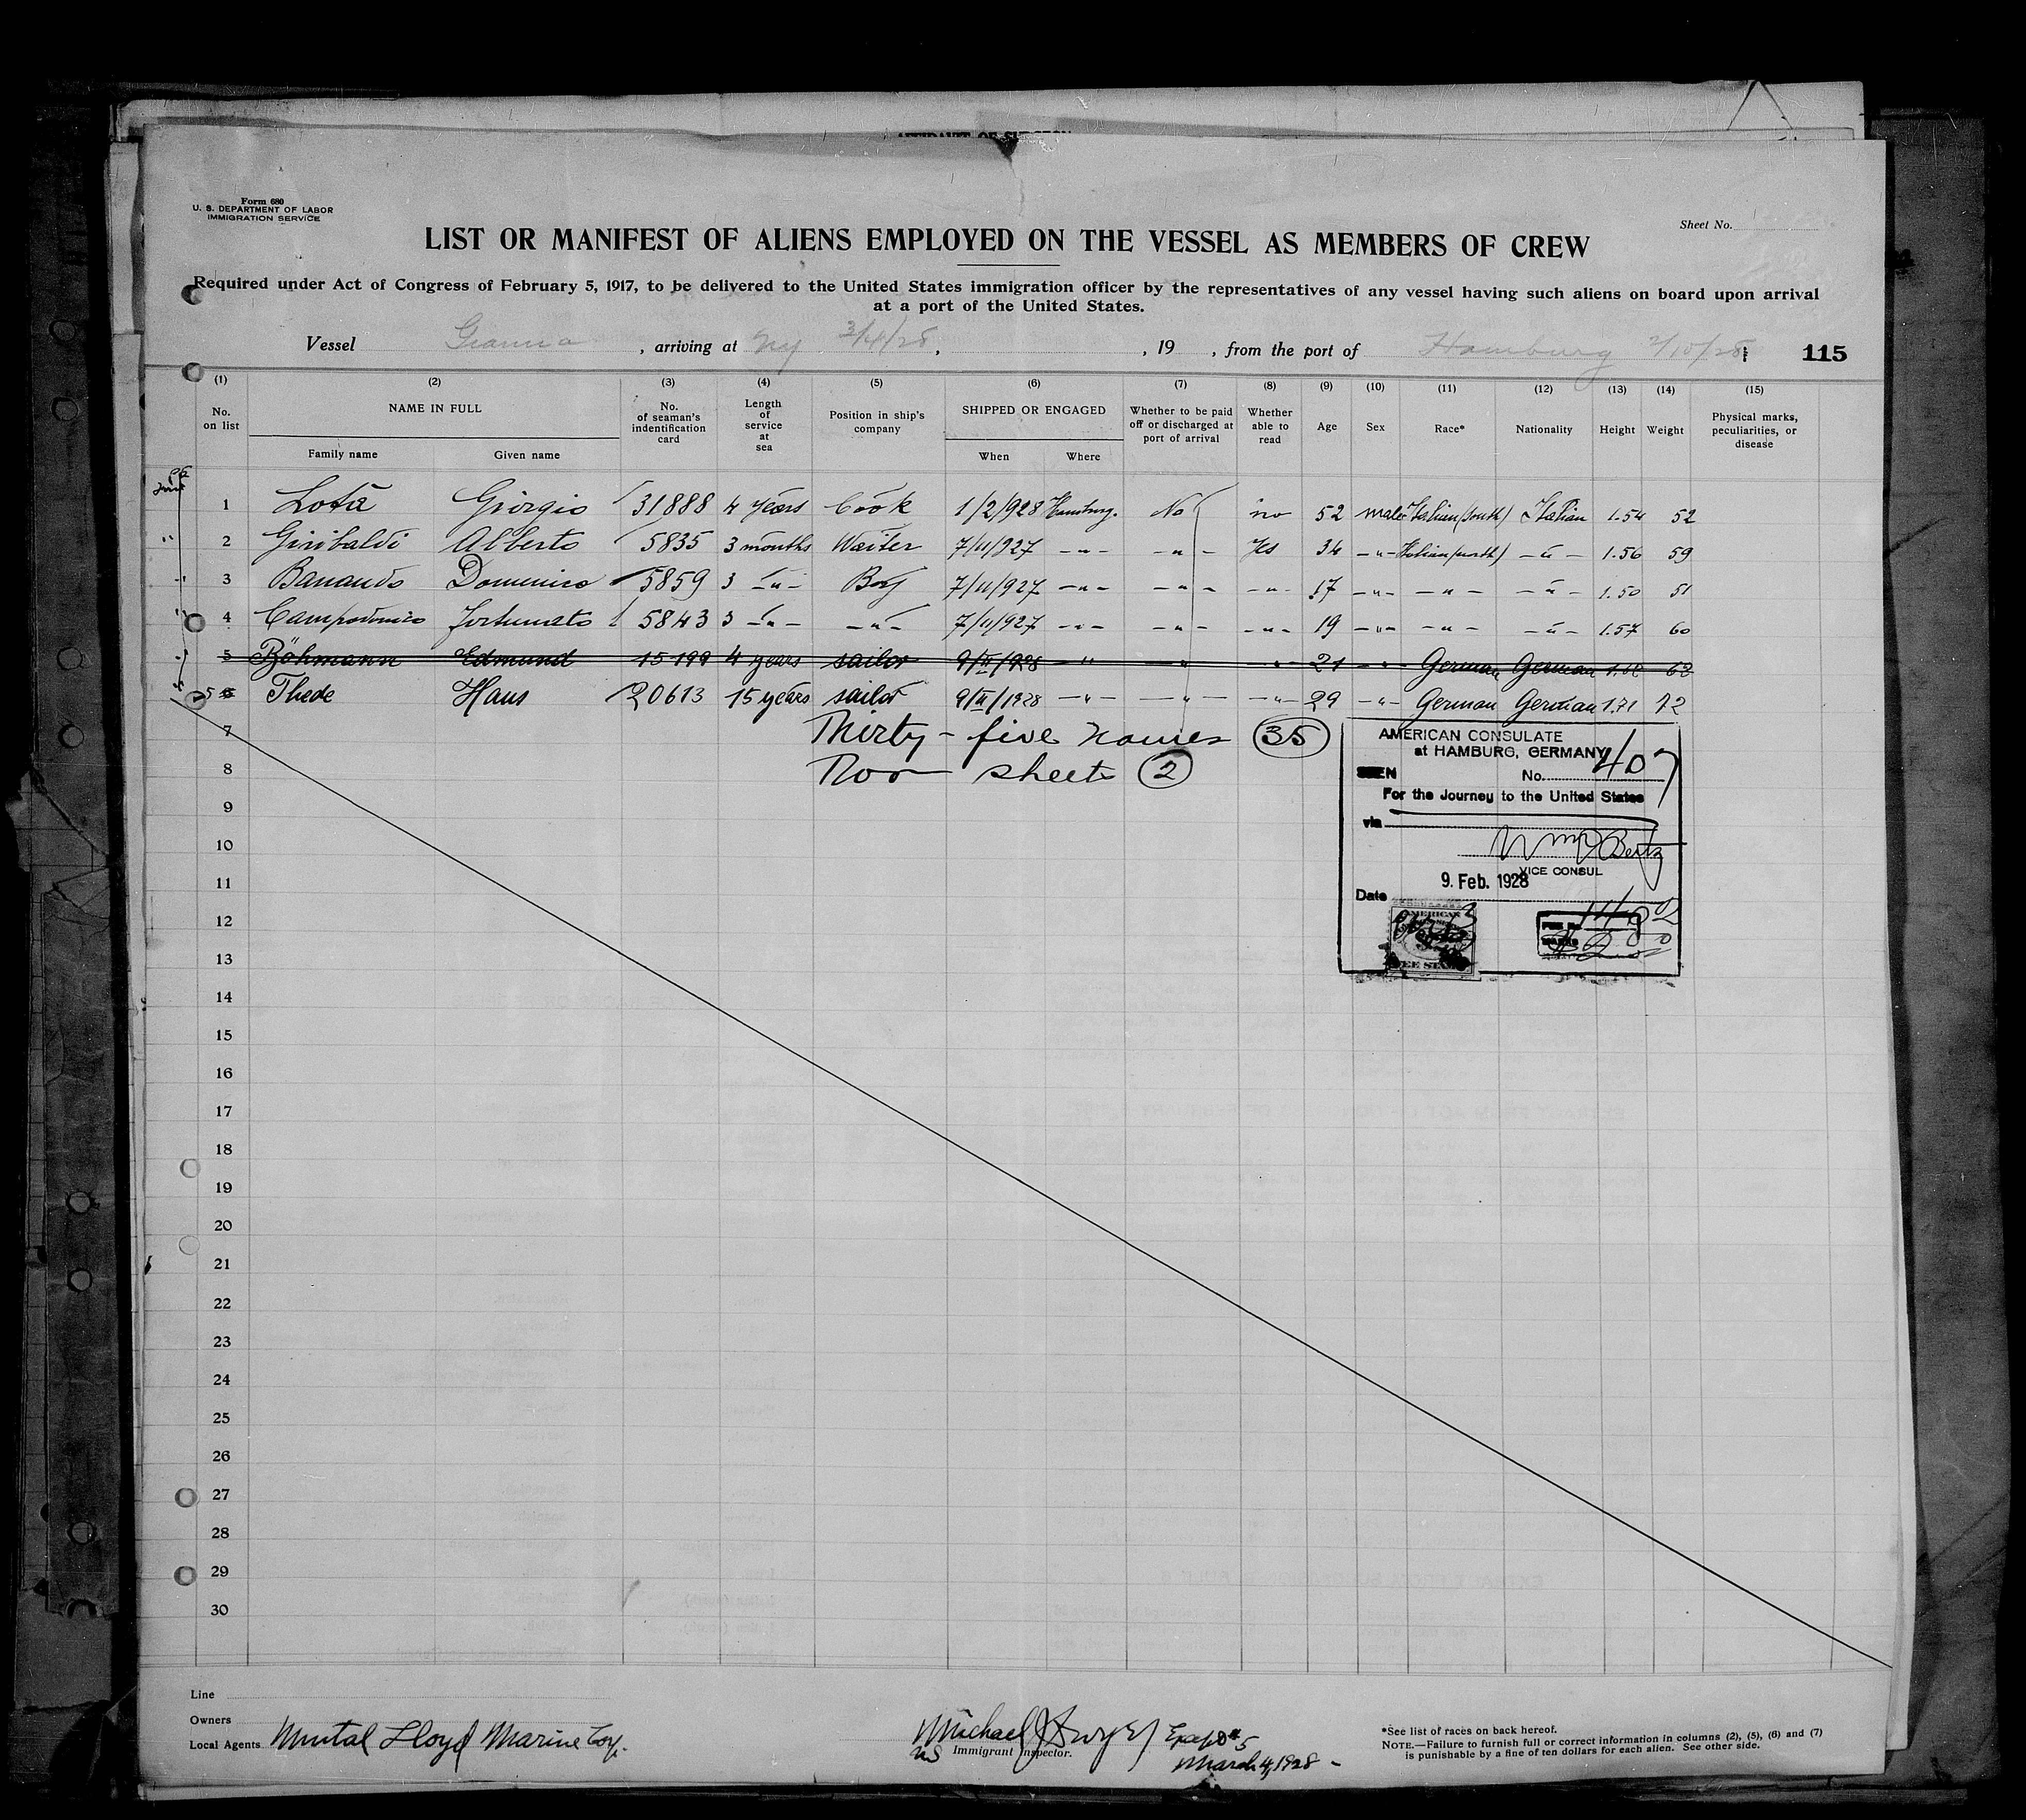 AFFIDAVIT OF SURGEON
Form 680
U. S. DEPARTMENT OF LABOR
IMMIGRATION SERVICE
Sheet No.
LIST OR MANIFEST OF ALIENS EMPLOYED ON THE VESSEL AS MEMBERS OF CREW
Required under Act of Congress of February 5, 1917, to be delivered to the United States immigration officer by the representatives of any vessel having such aliens on board upon arrival
at a port of the United States.
Vessel Gianna , arriving at NY 3/4/28 , , 19 , from the port of Hamburg 2/10/28 115
(1) (2) (3) (4) (5) (6) (7) (8) (9) (10) (11) (12) (13) (14) (15)
No. on list NAME IN FULL Family name Given name No. of seaman's indentification card Length of service at sea Position in ship's company SHIPPED OR ENGAGED When Where Whether to be paid off or discharged at port of arrival Whether able to read Age Sex Race* Nationality Height Weight Physical marks, peculiarities, or disease
1 Lota Giorgio 31888 4 years Cook 1/2/928 Hamburg. No no 52 male Italian (south) Italian 1.54 52
2 Giribaldi Alberto 5835 3 months Waiter 7/11/927 -"- -"- Yes 34 -"- Italian (north) -"- 1.56 59
3 Banaudo Domenico 5859 3 -"- Boy 7/11/927 -"- -"- -"- 17 -"- -"- -"- 1.50 51
4 Campodonico Fortunato 5843 3 -"- -"- 7/11/927 -"- -"- -"- 19 -"- -"- -"- 1.57 60
5 Böhmann Edmund 15199 4 years sailor 9/II/928 " " " 21 -"- German German 62
5 6 Thede Hans 20613 15 years sailor 9/II/1928 -"- -"- -"- 29 -"- German German 1.71 72
7 Thirty-five names (35)
8 sheets (2)
AMERICAN CONSULATE
at HAMBURG, GERMANY
SEEN No. 407
For the Journey to the United States
via
VICE CONSUL
9. Feb. 1928
Date
AMERICAN
FEE STAMP
9
10
11
12
13
14
15
16
17
18
19
20
21
22
23
24
25
26
27
28
29
30
Line
Owners
Local Agents Lloyd Marine Corp.
Michael J Dwyer
Immigrant Inspector.
March 4, 1928 -
*See list of races on back hereof.
NOTE.—Failure to furnish full or correct information in columns (2), (5), (6) and (7)
is punishable by a fine of ten dollars for each alien. See other side.